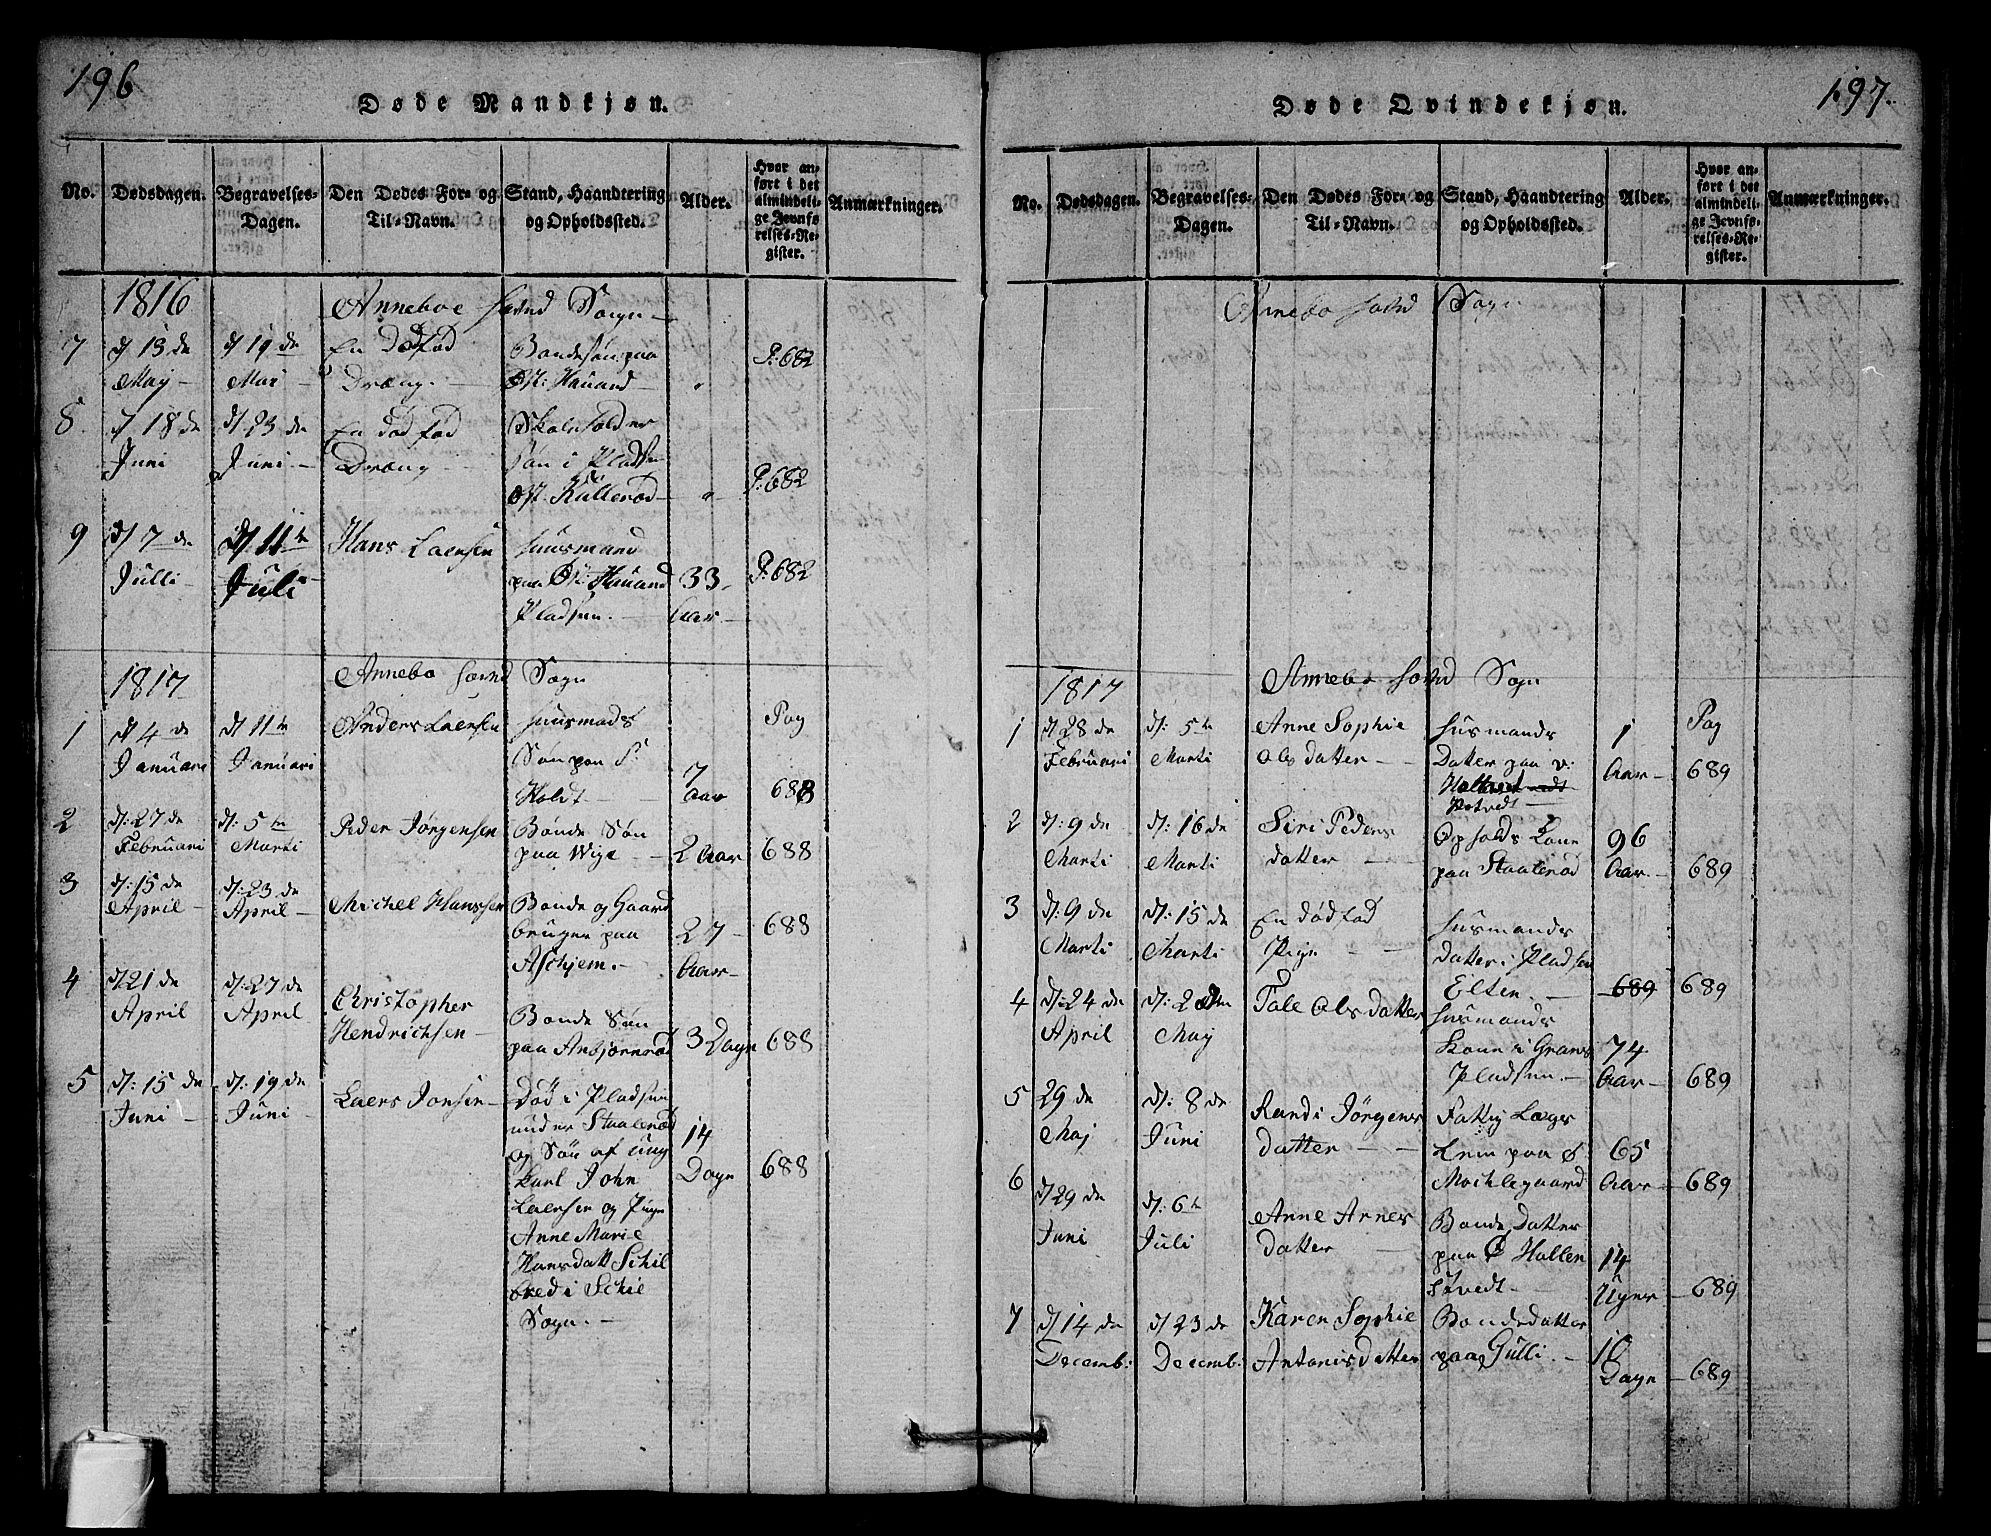 196
Døde Mandkjøn.
No.
Dødsdagen.
Begravelses-
Dagen.
Den Dødes For- og
Til-Navn.
Stand, Haandtering
og Opholdssted.
Alder.
Hvor an-
ført i det
almindeli-
ge Jevnfø-
relses-Re-
gister.
Anmærkninger.
1816
Anneboe Sogn
7
d/ 13 de
May
d/ 19 de
Mai
En dødfød
Dræng.
Bondesøn paa
Hauand
"
P: 682
8.
d/ 18 de
Juni
d/ 23 de
Juni
En død fød
Dræng
Skoleholder
søn i Pladsen
Kullerød
"
P: 682
9
d/ 7 de
Julli
d/ 11 te
Juli
Hans Laersen
huusmand
paa Hauand
Pladsen.
33
Aar
P: 682
1817
Annebo Sogn
1
d/ 4 de
Januari
d/ 11 te
Januari
Anders Laersen
huusmads
Søn paa
Holdt
7
Aar
Pag
688
2
d/: 27 de
Februari
d/: 5 te
Marti
Peder Jørgensen
Bonde Søn
paa Wige
2 Aar
688
3
d/: 15 de
April
d/: 23 de
April
Michel Hanssen
Bonde og Gaard
bruger paa
Aschjem.
27
Aar
688
4
d/ 21 de
April
d/: 27 de
April
Christopher
Hendrichsen
Bonde Søn
paa Anbjørnrød
3 Dage
688
5
d/: 15 de
Juni
d/: 19 de
Juni
Laers Jonsen
Død i Pladsen
under Staalerød
og Søn af ung
karl John
Laersen og Pige
Anne Marie
Hansdatt Schil
bred i Schie
Sogn.
14
Dage
688
197.
Døde Qvindekjøn.
No.
Dødsdagen.
Begravelses-
Dagen.
Den Dødes For- og
Til-Navn.
Stand, Haandtering
og Opholdssted.
Alder.
Hvor an-
ført i det
almindeli-
ge Jevnfø-
relses-Re-
gister.
Anmærkninger.
Annebo Sogn
1817
Annebo Sogn
1
d/ 28 de
Februari
d/: 5 te
Marti
Anne Sophie
Ols datter
husmands
Datter paa v:
1
Aar
Pag
689
2
d/: 9 de
Marti
d/: 16 de
Marti
Siri Peders
datter
Opholds Kone
paa Staalerød
96
Aar
689
3
d/: 9 de
Marti
d/: 15 de
Marti
En død fød
Pige
husmands
datter i Pladsen
Elten.
689
689
4
d/: 24 de
April
d/: 2 den
May
Tale Ols datter
husmands
Kone i Grans
Pladsen.
74
Aar
689
5
29 de
Maj
d/: 8 de
Juni
Randi Jørgens
Datter
Fattig Lægs
Lem paa Ø
Mochlegaard
65
Aar
689
6
d/ 29 de
Juni
d/: 6 te
Juli
Anne Arnes
datter
Bonde Datter
paa Ø Hallen
støvedt
14
Uger
689
7
d/ 14 de
Decemb:
d/ 23 de
Decemb:
Karen Sophie
Antonis datter
Bondedatter
paa Gulli.
Dage
689